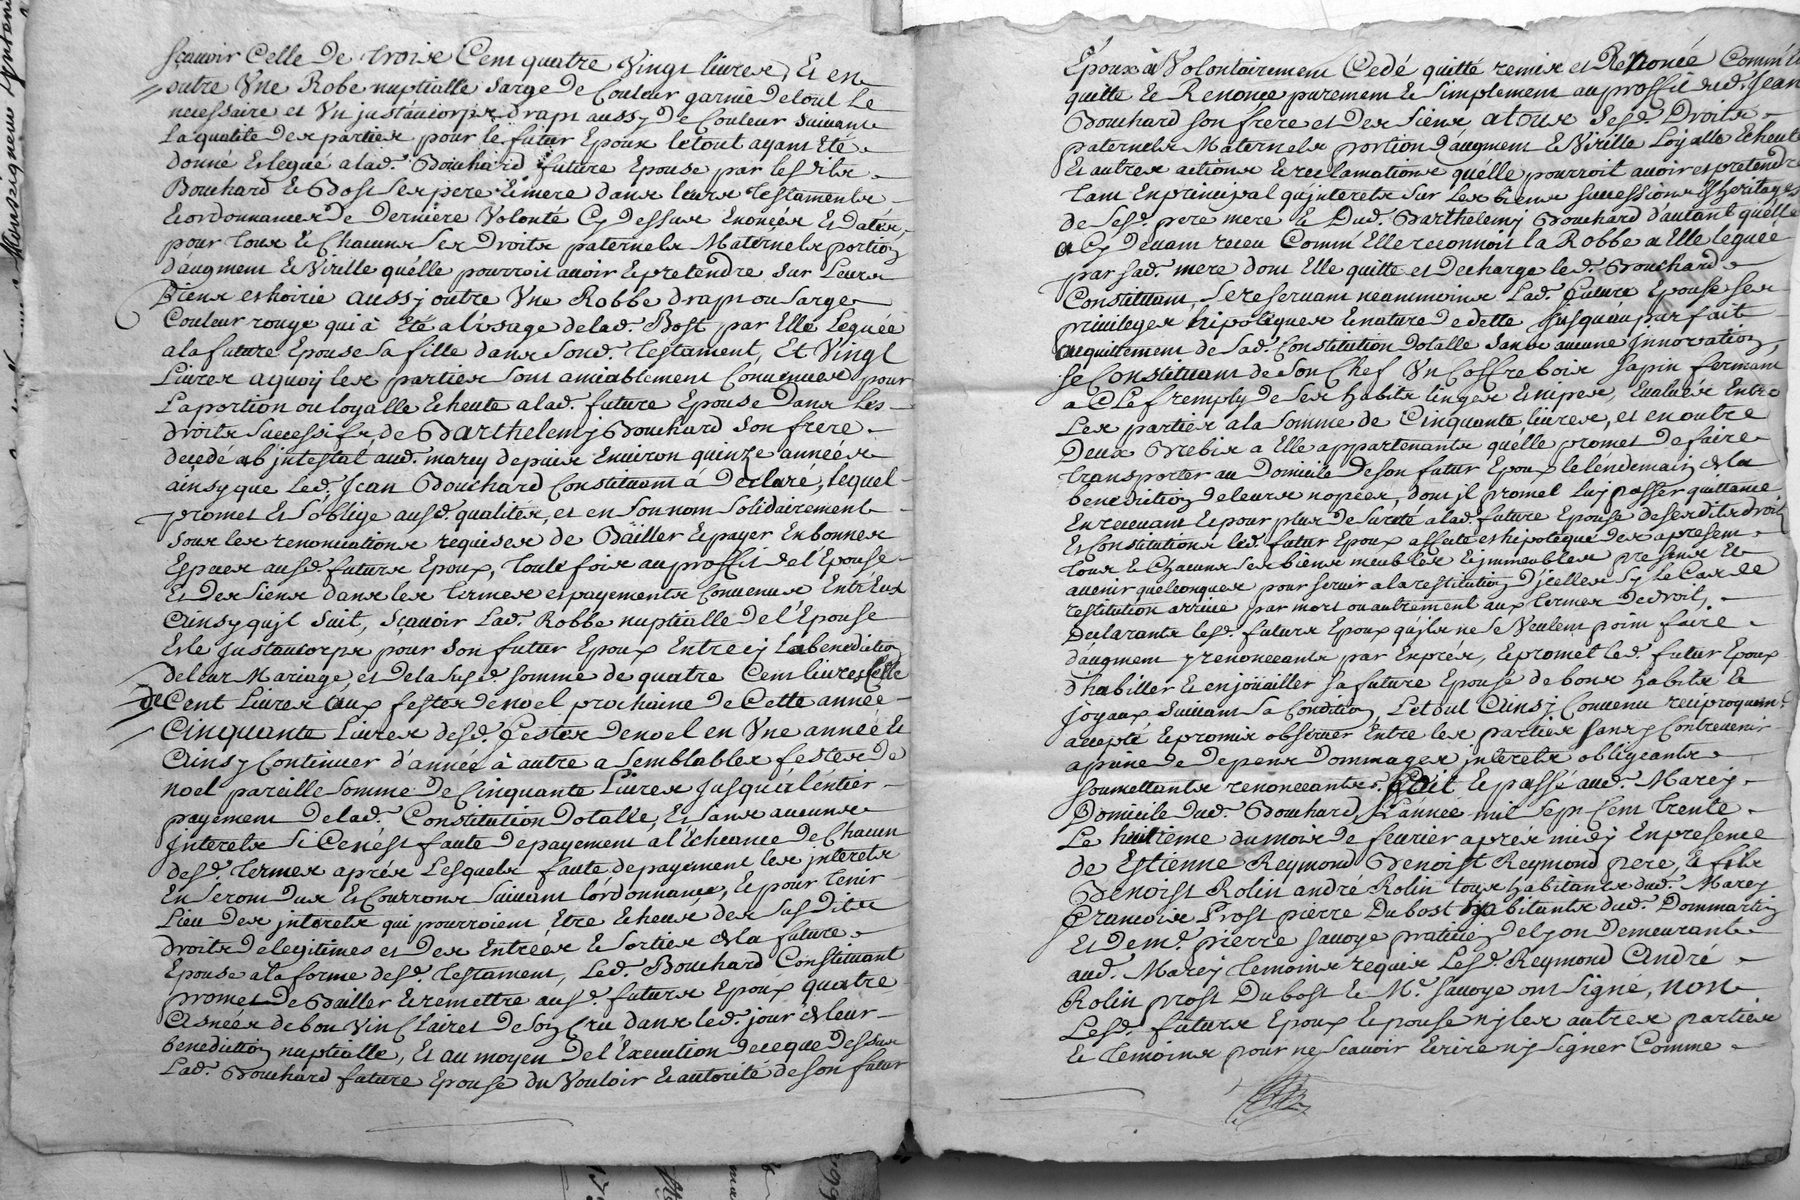 sçavoir Celle de trois Cent quatre Vingt livres, Et en
outre Vne Robe nuptialle sarge de Couleur garnie detout Le
necessaire et Vn justaucorps drap aussy de Couleur suivant
La qualité des parties pour le futur Epoux letout ayant Eté
donné Et legué alad. Bouchard future Epouse par lesdits
Bouchard & Bost ses pere & mere dans leurs testaments
& ordonnances de derniere Volonté Cy dessus Enoncés & datés,
pour tous & Chacuns ses Droits paternels Maternels portion
d'augment & Virille qu'elle pourroit avoir & pretendre sur Leurs
Biens et hoirie aussy outre Vne Robbe drap ou sarge
Couleur rouge qui à Eté a l'usage delad. Bost par Elle Leguée
ala future Epouse sa fille dans sond. Testament, Et Vingt
Livres aquoy les parties sont amiablement Convenues pour
La portion ou loyalle Echeute alad. future Epouse Dans Les
droits successifs de Barthelemy Bouchard son frere
decedé ab'intestat aud. marcy depuis Environ quinze années
ainsy que led. Jean Bouchard Constituant à declaré, lequel
promet & s'oblige ausd. qualités, et en son nom solidairement
sous les renonciations requises de Bailler & payer En bonnes
Especes ausd. futurs Epoux, toutefois au proffit de l'Epouse
Et des siens dans les termes et payements Convenus Entr'Eux
Ainsy qu'jl suit, sçavoir Lad. Robbe nuptialle de l'Epouse
Et le justaucorps pour son futur Epoux Entrecy Labenediction
deleur Mariage, et de la susd. somme de quatre Cent livres Celle
de Cent Livres aux festes denoel prochaine de Cette année
Cinquante Livres desd. festes denoel en Vne année &
Ainsy Continuer d'année à autre a semblables festes de
noel pareille somme de Cinquante Livres jusqu'à l'entier
payement delad. Constitution dotalle, Et sans aucuns
jnterets si Ce n'est faute de payement a l'Echeance de Chacun
desd. termes aprés Lesquels faute de payement les jnterets
En seront dus Et Courront suivant lordonnance, & pour tenir
Lieu des jnterets qui pourroient Etre Echeus des susdits
droits de legitimes et des Entrées & sorties de la future
Epouse ala forme desd. testament, Led. Bouchard Constituant
promet de Bailler & remettre ausd. futurs Epoux quatre
Asnées de bon Vin Clairet de son Cru dans led. jour de leur
benediction nuptialle, Et au moyen de l'Execution de ce que dessus
Lad. Bouchard future Epouse du Vouloir & autorité de son futur
Epoux à Volontairement Cedé quitté remis et Renoncé Comm'Elle
quitte & Renonce purement & simplement au proffit dud. Jean
Bouchard son frere et des siens atous sesd. Droits
paternels Maternels portion d'augment & Virille Loyalle Echeute
Et autres actions & reclamations qu'elle pourroit avoir et pretendre
tant En principal qu'jnterets sur Les biens successions & heritages
de sesd. pere mere & Dud. Barthelemy Bouchard d'autant qu'elle
a Cy devant receu Comm'Elle reconnoit la Robbe a Elle leguée
par sad. mere dont Elle quitte et decharge led. Bouchard
Constituant, se reservant neammoins Lad. future Epouse ses
privileges hipoteques & nature de dette jusqu'au parfait
acquittement de sad. Constitution dotalle sans aucune jnnovation,
se Constituant de son Chef Vn Coffre bois sapin fermant
a Clef remply de ses habits linges & nipes, Evalués Entre
Les parties ala somme de Cinquante livres, et en outre
Deux Brebis a Elle appartenants qu'elle promet de faire
transporter au Domicile de son futur Epoux le lendemain de la
benediction de leurs nopces, dont jl promet luy passer quittance
En recevant & pour plus de sureté alad. future Epouse de sesdits droits
Et Constitutions led. futur Epoux affecte et hipoteque des apresent
tous & Chacuns ses biens meubles & jmmeubles presents &
avenir quelconques pour servir ala restitution d'jcelles sy le Cas de
restitution arrive par mort ou autrement aux termes de droit,
declarants lesd. futurs Epoux qu'jls ne se Veulent point faire
d'augment y renonceants par Exprés, & promet led. futur Epoux
d'habiller & enjoüailler sa future Epouse de bons habits &
joyaux suivant sa Condition, Letout Ainsy Convenu reciproquem.t
accepté & promis observer Entre les parties sans y Contrevenir
apeine de depens dommages jnterets obligeants
soumettants renonceants. Fait & passé aud. Marcy
Domicile dud. Bouchard, L'année mil sept Cent trente
Le huitieme du mois de fevrier aprés midy En presence
de Estienne Reymond Benoist Reymond pere & fils
Benoist Rolin andré Rolin tous habitants dud. Marcy
François Prost pierre Dubost habitants dud. Dommartin
Et de m.e pierre savoye praticien de lyon demeurant
aud. Marcy temoins requis Lesd. Reymond André
Rolin prost Dubost & M.e savoye ont signé, non
Lesd. futurs Epoux & Epouse ny les autres parties
& temoins pour ne sçavoir Ecrire ny signer Comme